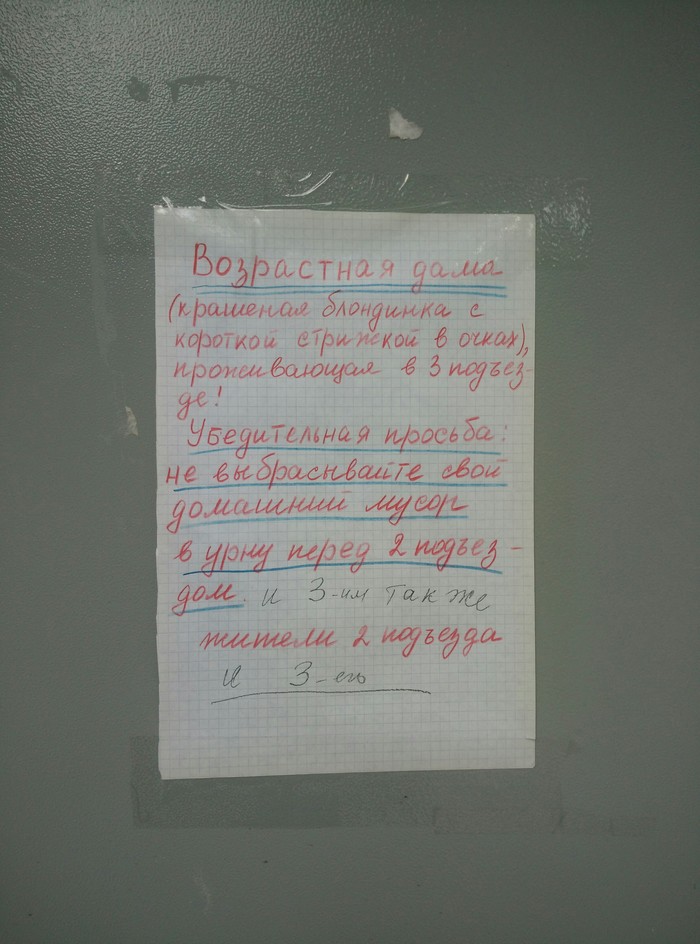 Возрастная дама
(крашеная блондинка с
короткой стрижкой в очках),
проживающая в 3 подъез-
де!
Убедительная просьба:
не выбрасывайте свой
домашний мусор
в урну перед 2 подъез-
дом. и 3-им так же
жители 2 подъезда
и 3-его